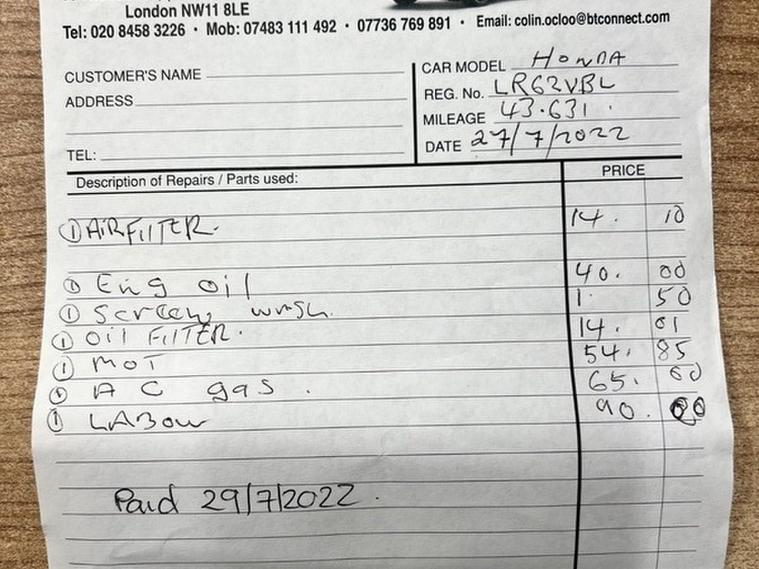 London NW11 8LE
Tel: 020 8458 3226 · Mob: 07483 111 492 · 07736 769 891 · Email: colin.ocloo@btconnect.com
CUSTOMER'S NAME
ADDRESS
TEL:
CAR MODEL HONDA
REG. No. LR62VBL
MILEAGE 43.631.
DATE 27/7/2022
Description of Repairs / Parts used: PRICE
① AIR FILTER. 14. 10
① Eng oil 40. 00
① Screen wash. 1. 50
① OIL FILTER. 14. 01
① MOT 54. 85
① A C gas. 65. 00
① LABOUR 90. 00
Paid 29/7/2022.